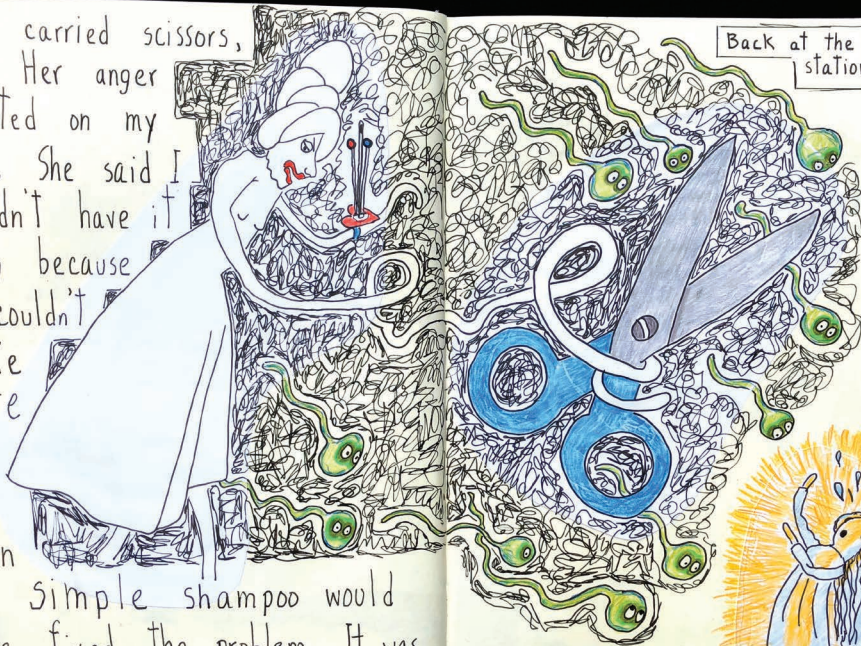 carried scissors,
Her anger
ted on my
She said I
dn't have it
because
couldn't
simple shampoo would
the problem. It was
Back at the
station